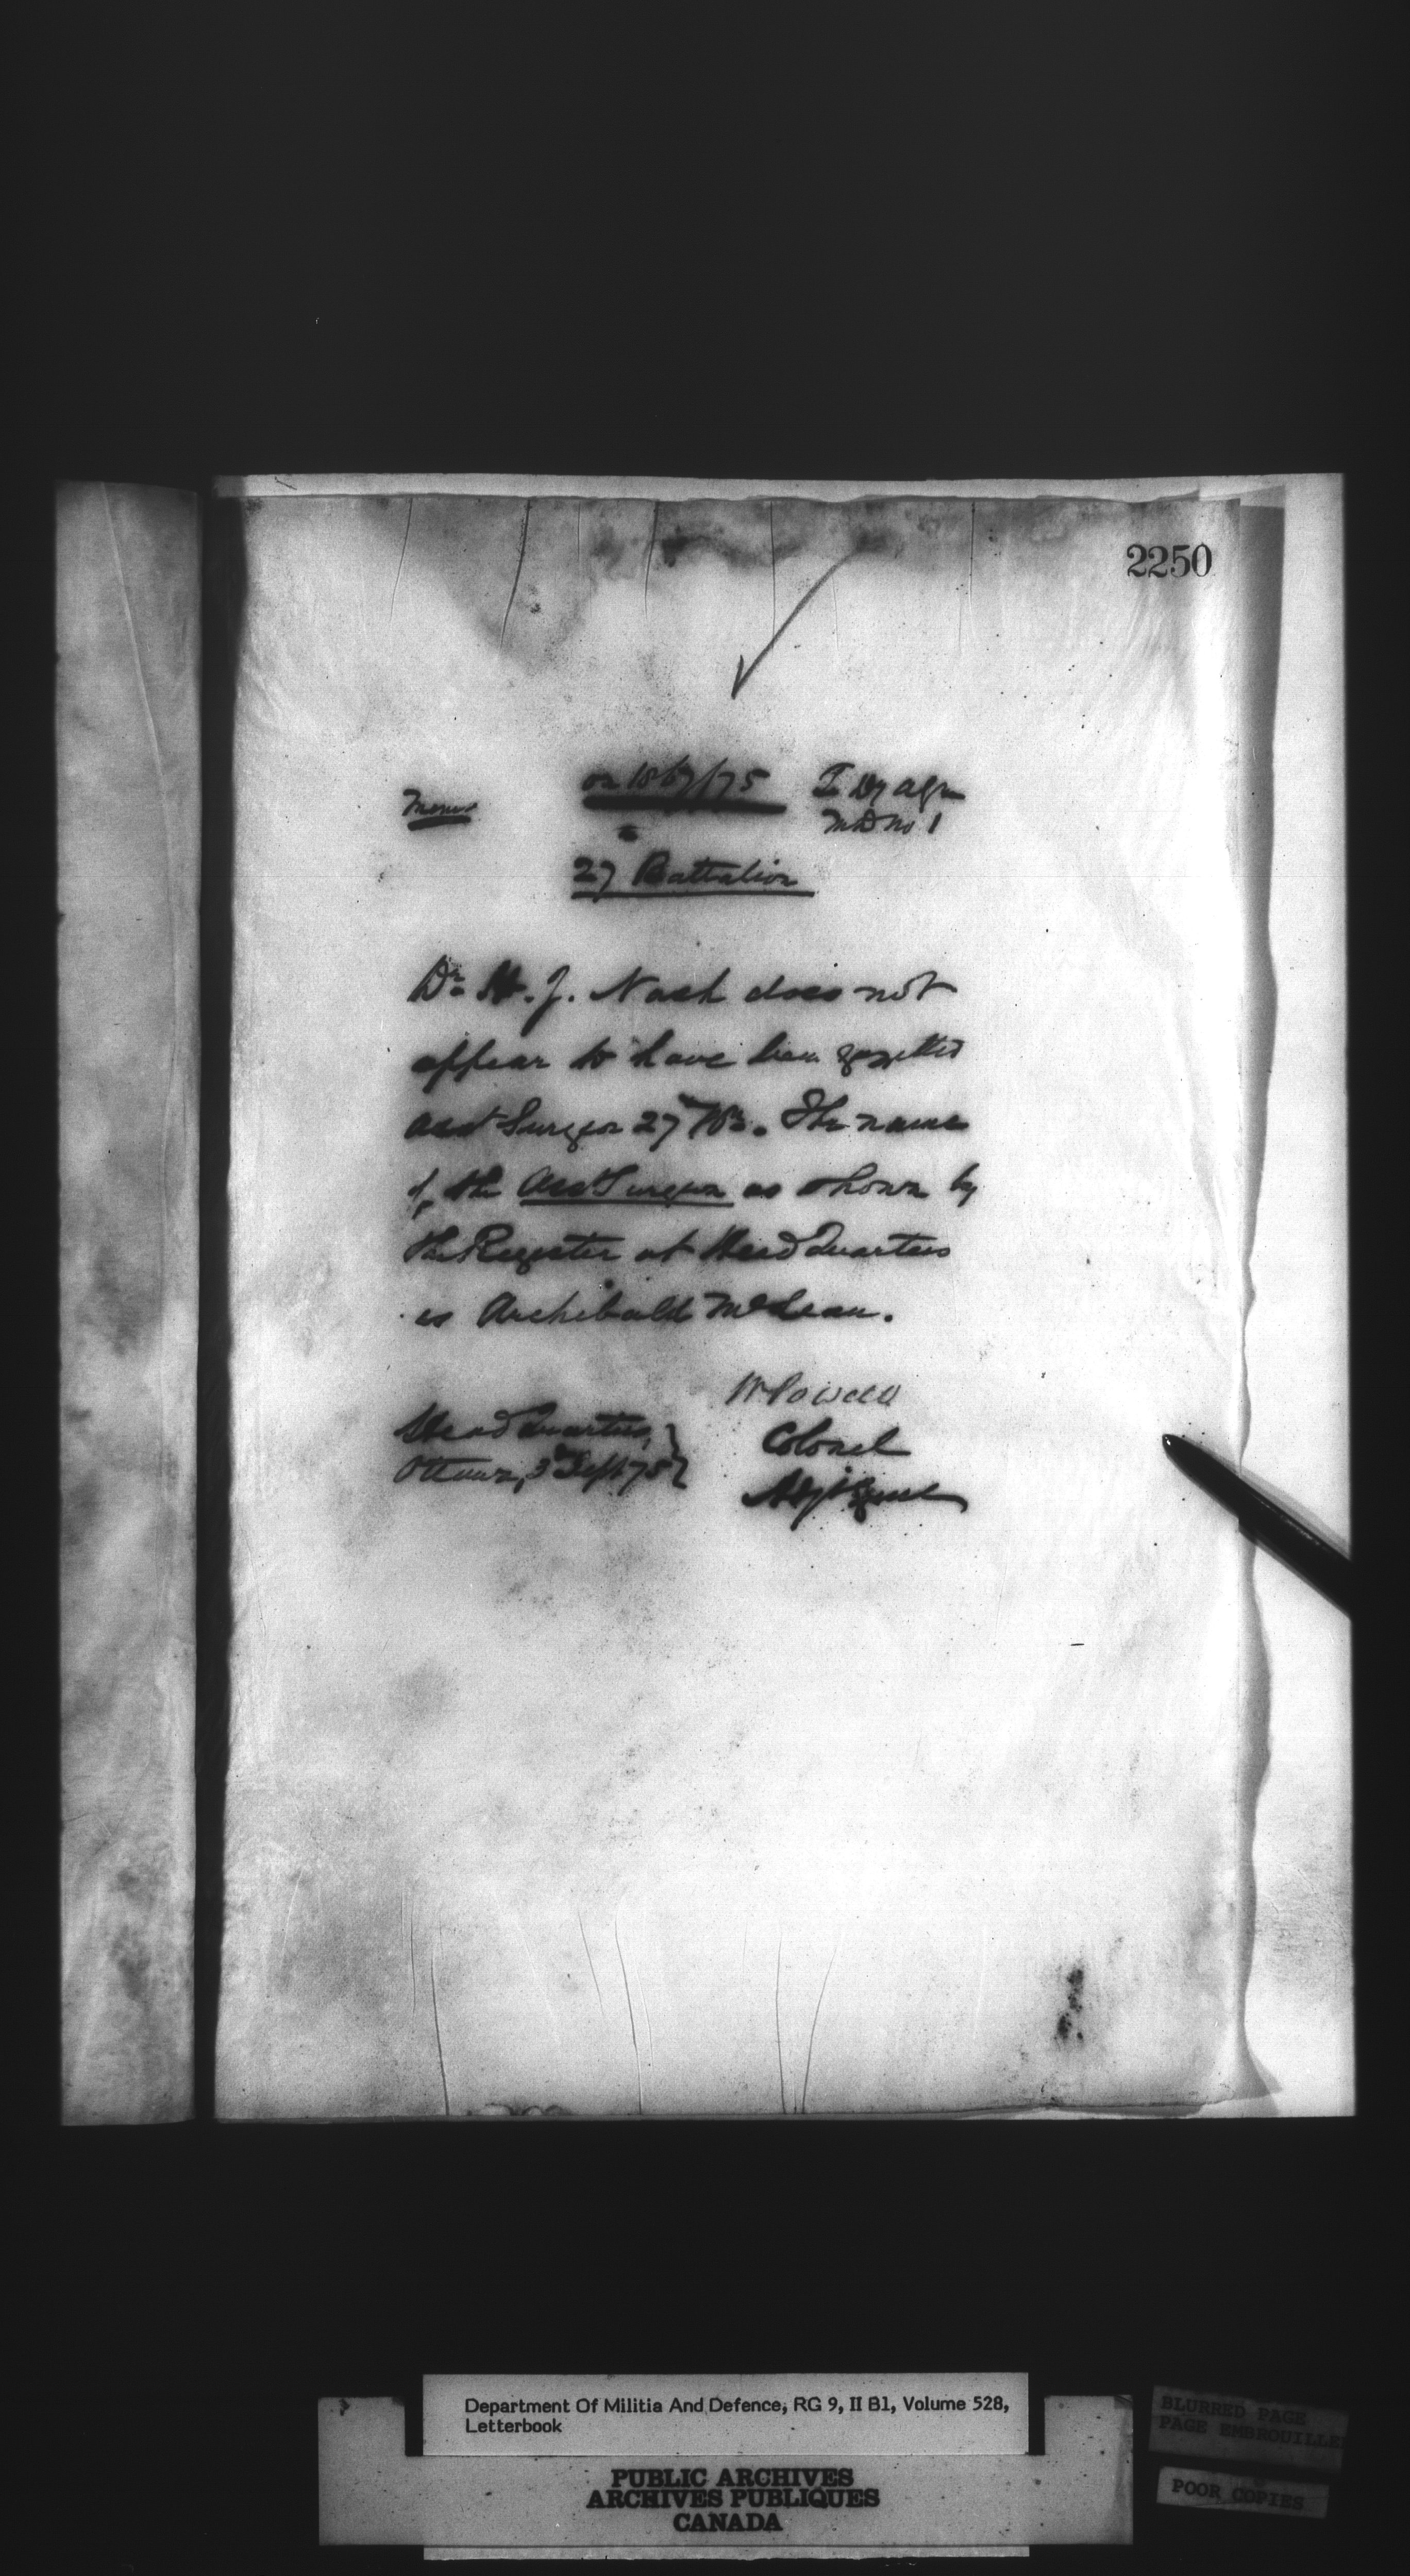 2250
Memo on 1867/75 To Dy Agm
M D No 1
27 Battalion
Dr. H. J. Nash does not
appear to have been gazetted
Asst Surgeon 27th Bn. The name
of the Asst Surgeon as shown by
the Register at Head Quarters
is Archibald McLean.
W Powell
Head Quarters, Colonel
Ottawa, 3rd Sept 75 Adjt Genl
Department Of Militia And Defence, RG 9, II B1, Volume 528,
Letterbook
PUBLIC ARCHIVES
ARCHIVES PUBLIQUES
CANADA
BLURRED PAGE
PAGE EMBROUILLE
POOR COPIES